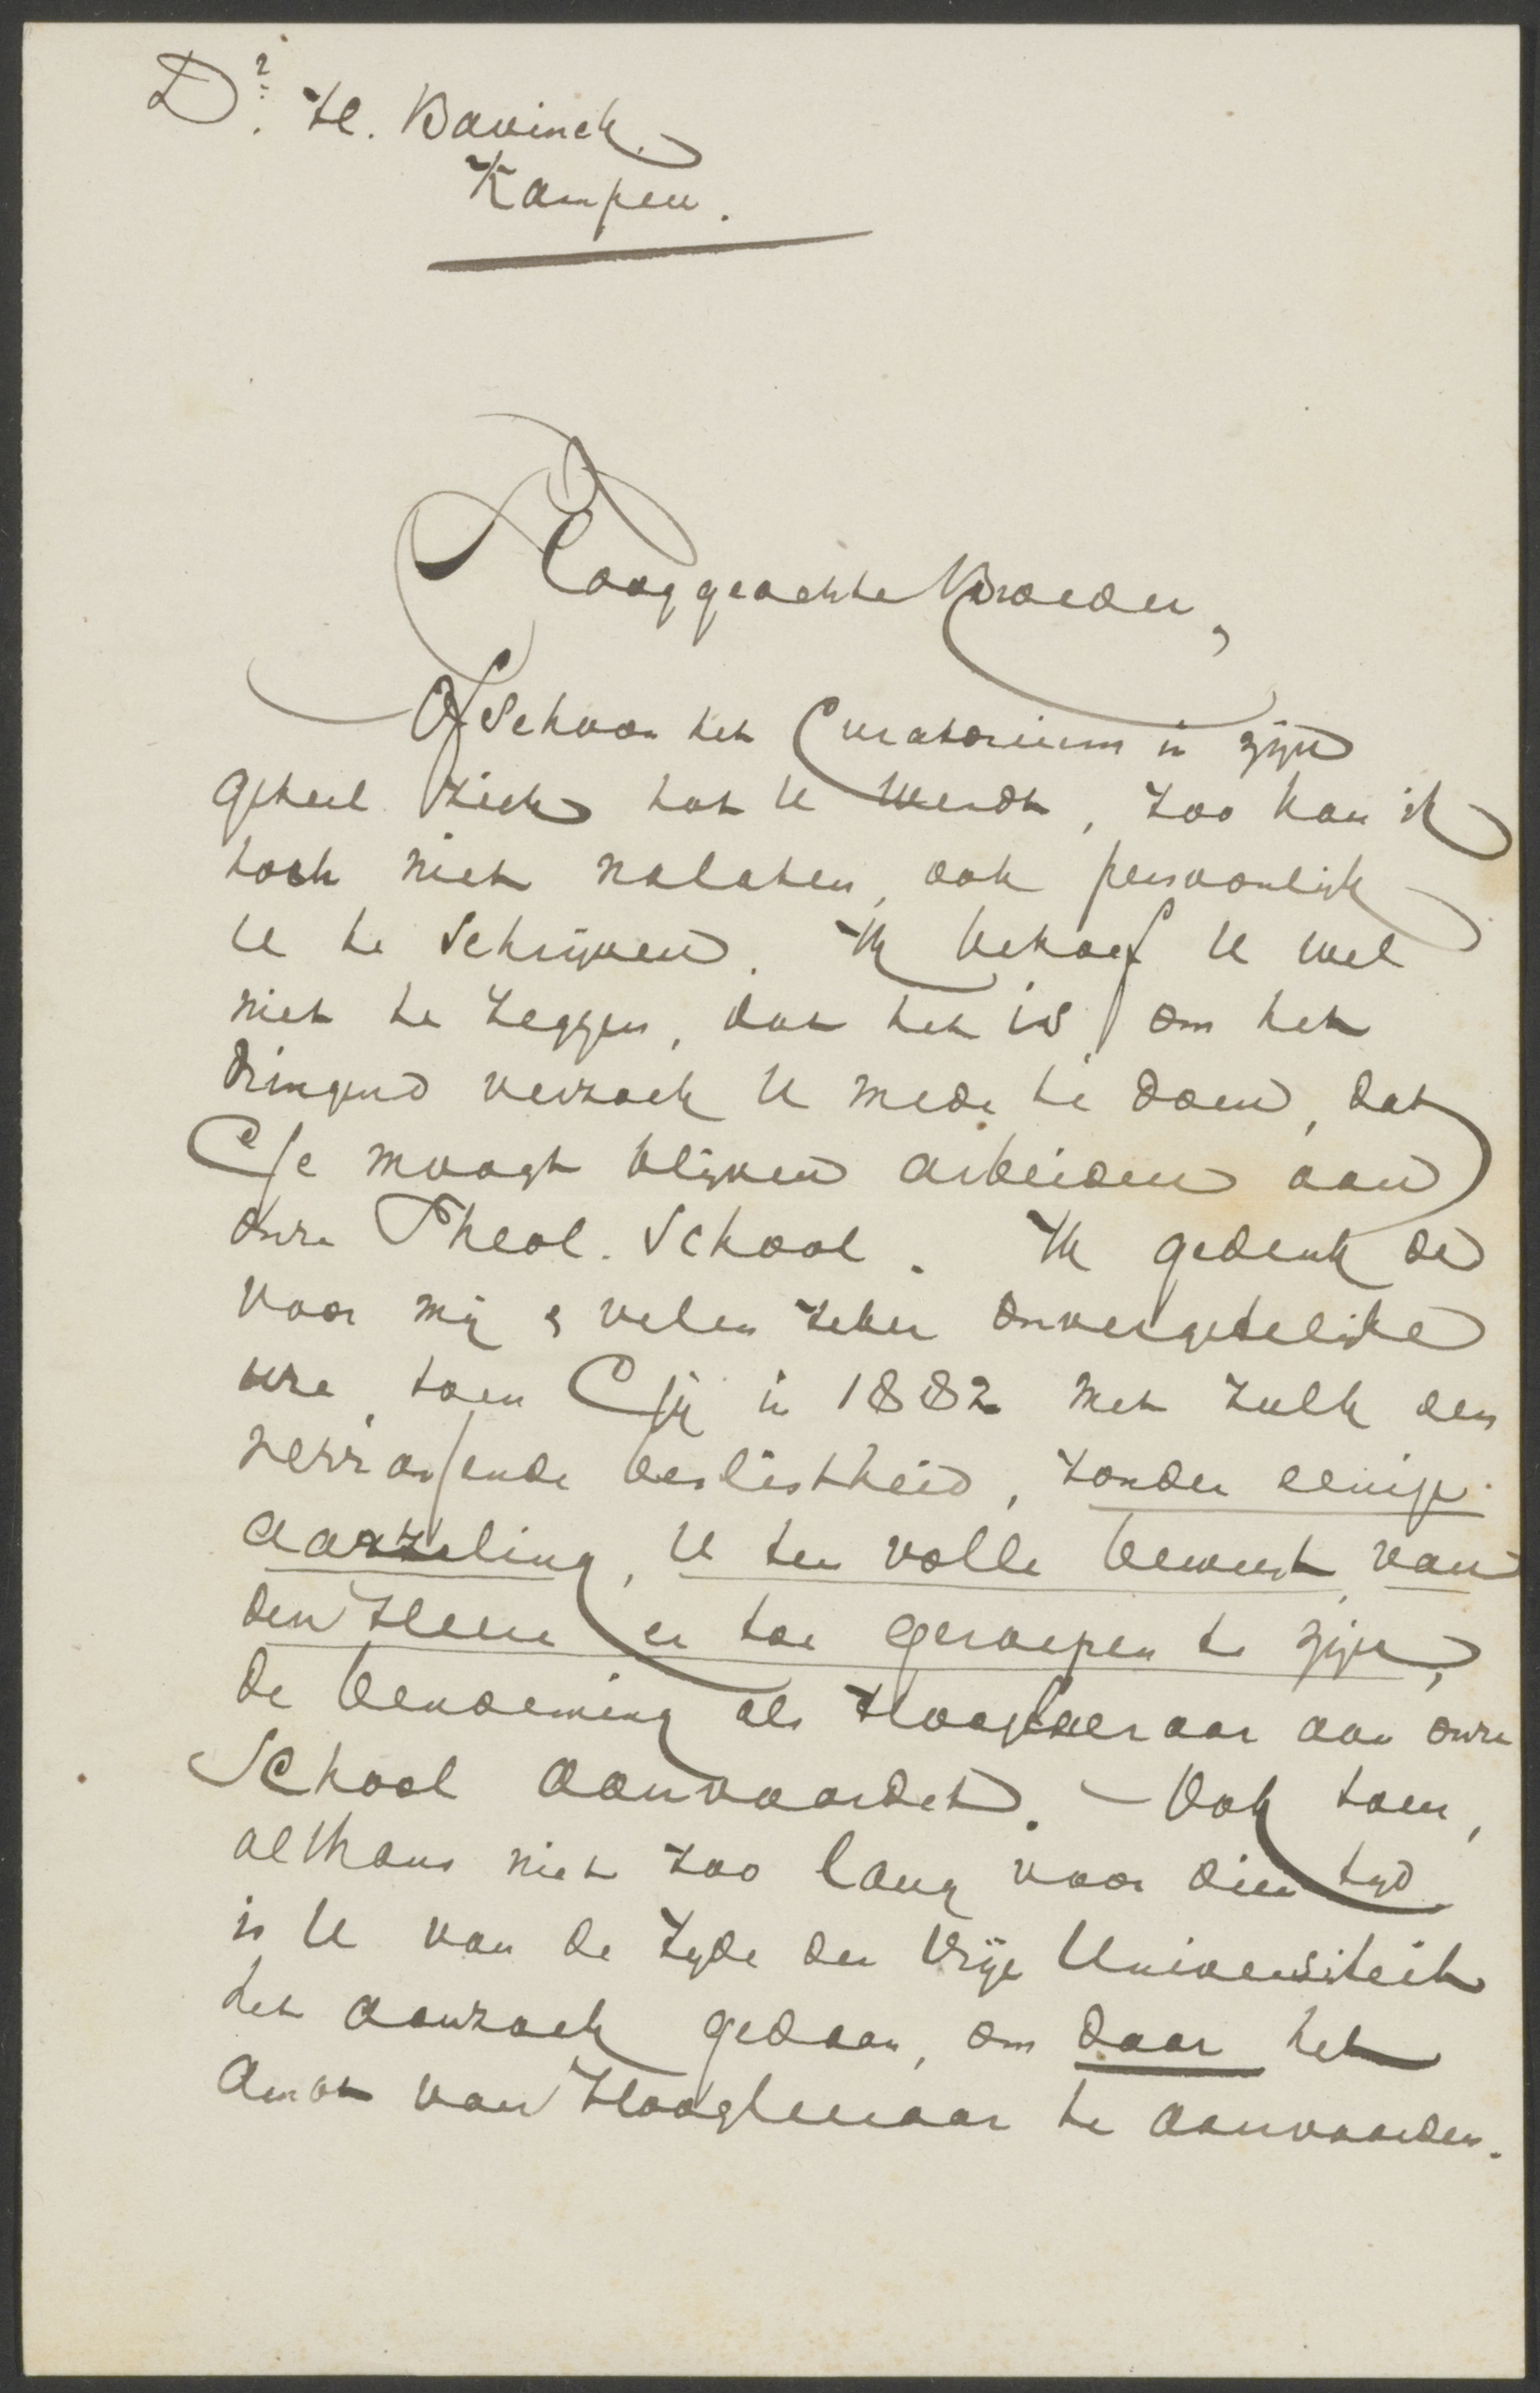 Dr. H. Bavinck
Kampen.
Hooggeachte Broeder,
Ofschoon het Curatorium in zijn
geheel zich tot U wendt, zoo kan ik
toch niet nalaten, ook persoonlijk
U te schrijven. Ik behoef U wel
niet te zeggen, dat het is om het
dringend verzoek U mede te doen, dat
Ge moogt blijven arbeiden aan
onze Theol. School. Ik gedenk de
voor mij & velen zeker onvergetelijke
ure, toen Gij in 1882 met zulk een
verrassende beslistheid, zonder eenige
aarzeling, U ten volle bewust, van
den Heere er toe geroepen te zijn,
de benoeming als Hoogleeraar aan onze
School aanvaardet. – Ook toen,
althans niet zoo lang voor dien tyd
is U van de zyde der Vrije Universiteit
het aanzoek gedaan, om daar het
ambt van Hoogleeraar te aanvaarden.